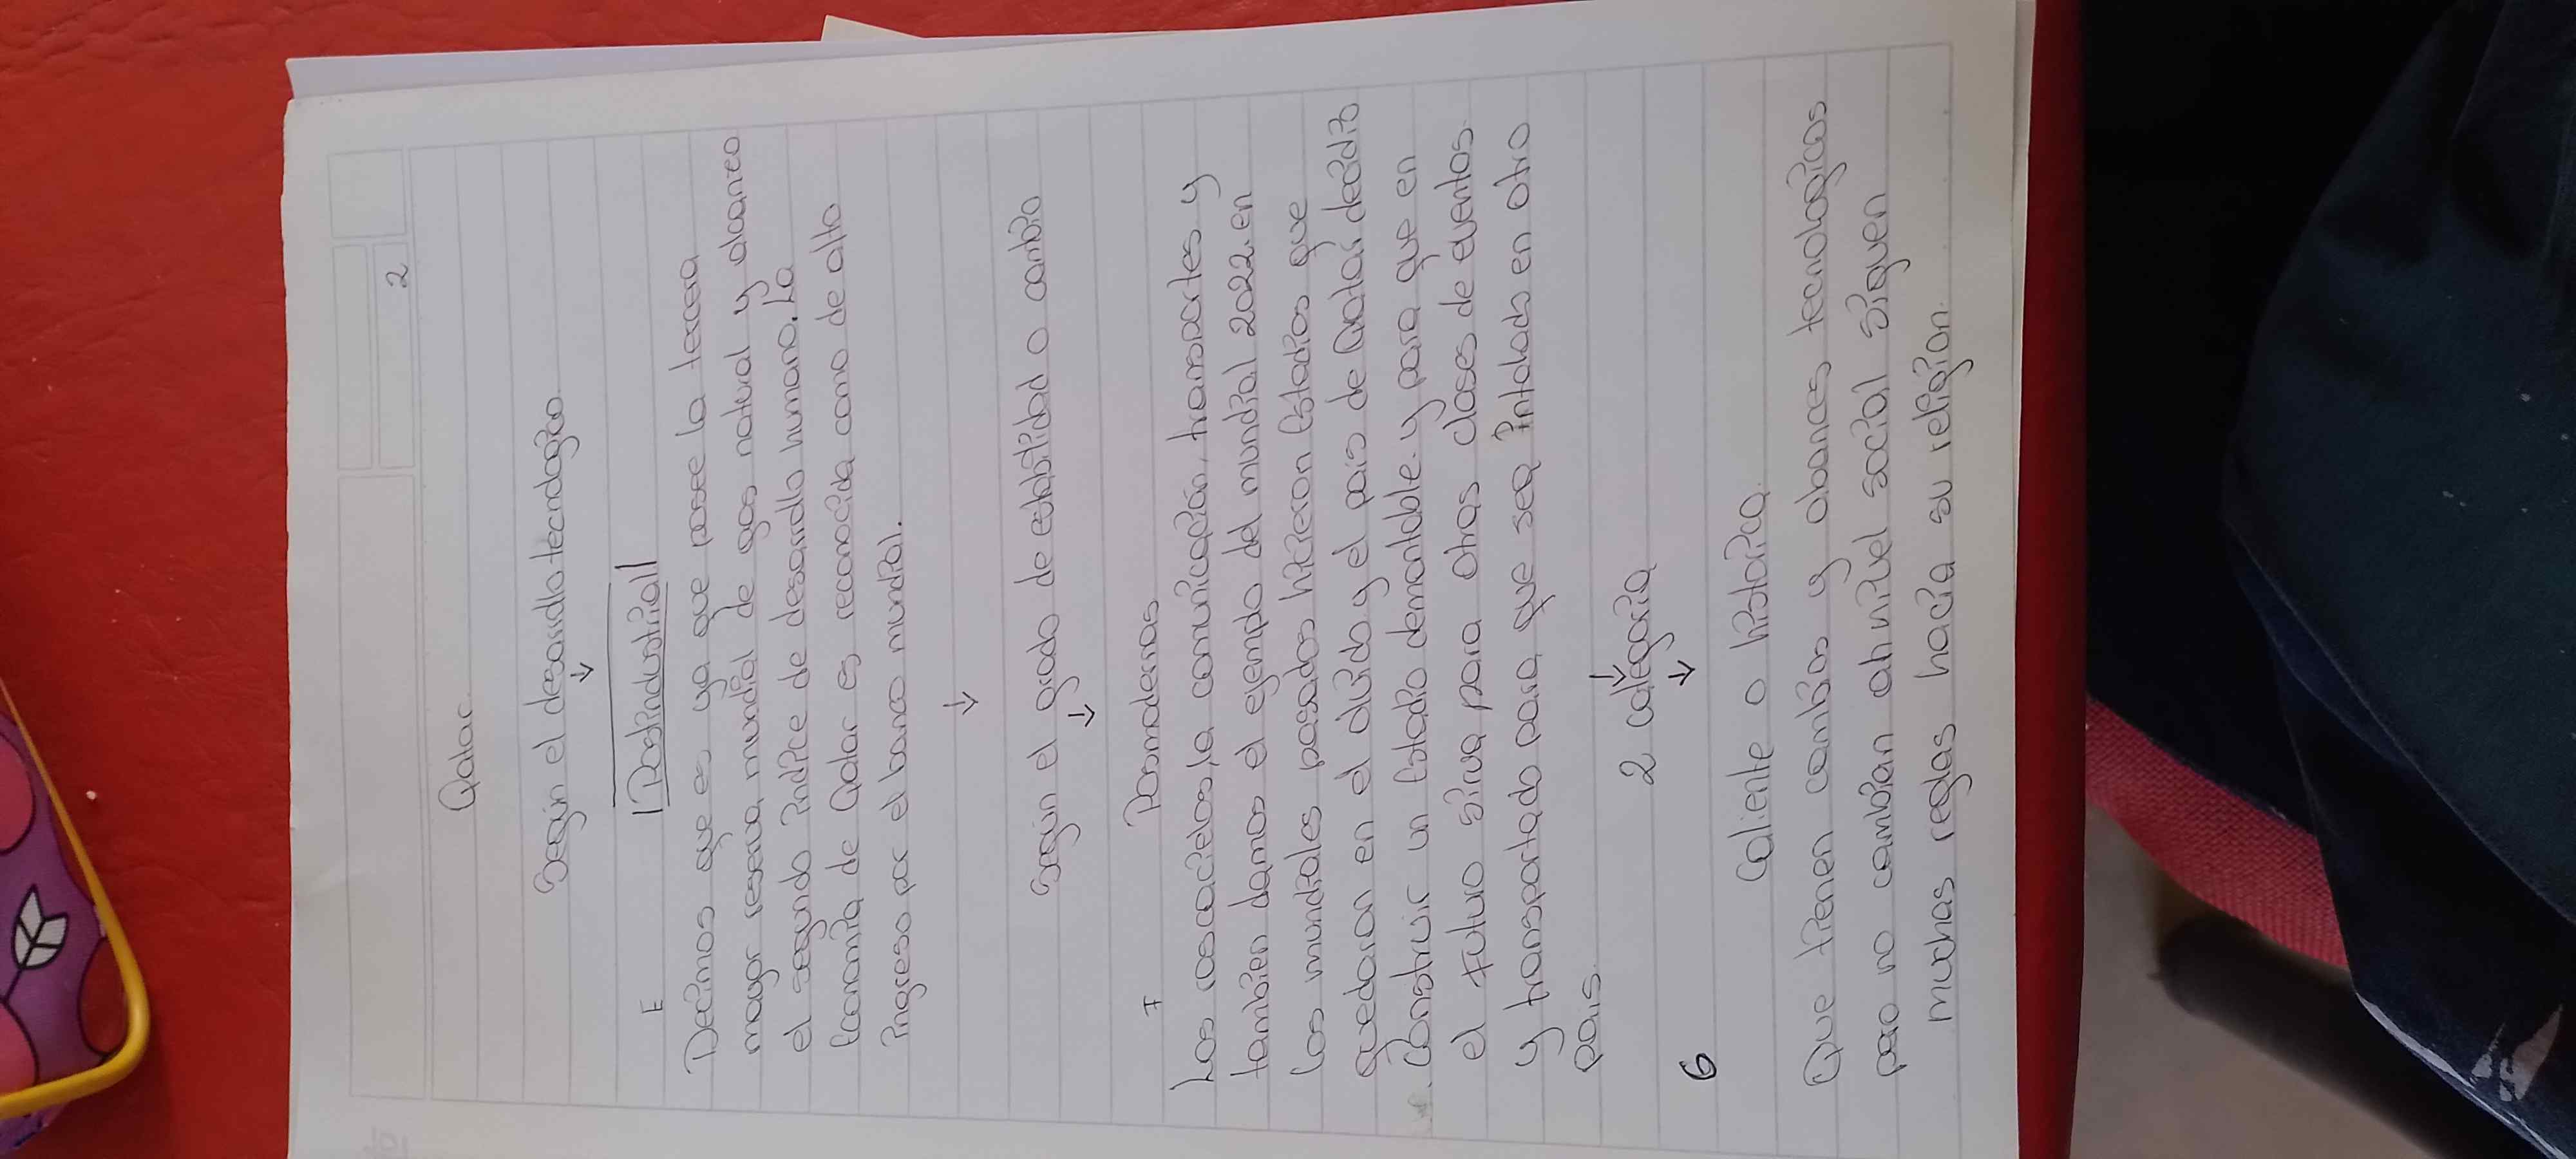 2
Qatar.
Según el desarrollo tecnologico.
↓
Postindustrial
E
Decimos que es ya que posee la tercera
mayor reserva mundial de gas natural y alcanzo
el segundo indice de desarrollo humano. La
Economia de Qatar es reconocida como de alto
ingreso por el banco mundial.
↓
Según el grado de estabilidad o cambio
↓
F Posmodernas
Los rascacielos, la comunicación, transportes y
tambien damos el ejemplo del mundial 2022. en
los mundiales pasados hicieron Estadios que
quedaron en el olvido y el pais de Qatar decidio
Construir un Estadio demontable. y para que en
el futuro sirva para otras clases de eventos.
y transportado para que sea intalado en otro
pais.
↓
2 categoria
↓
6
Caliente o historica.
Que tienen cambios y abances tecnologicos
pero no cambian ah nivel social siguen
muchas reglas hacia su religion.